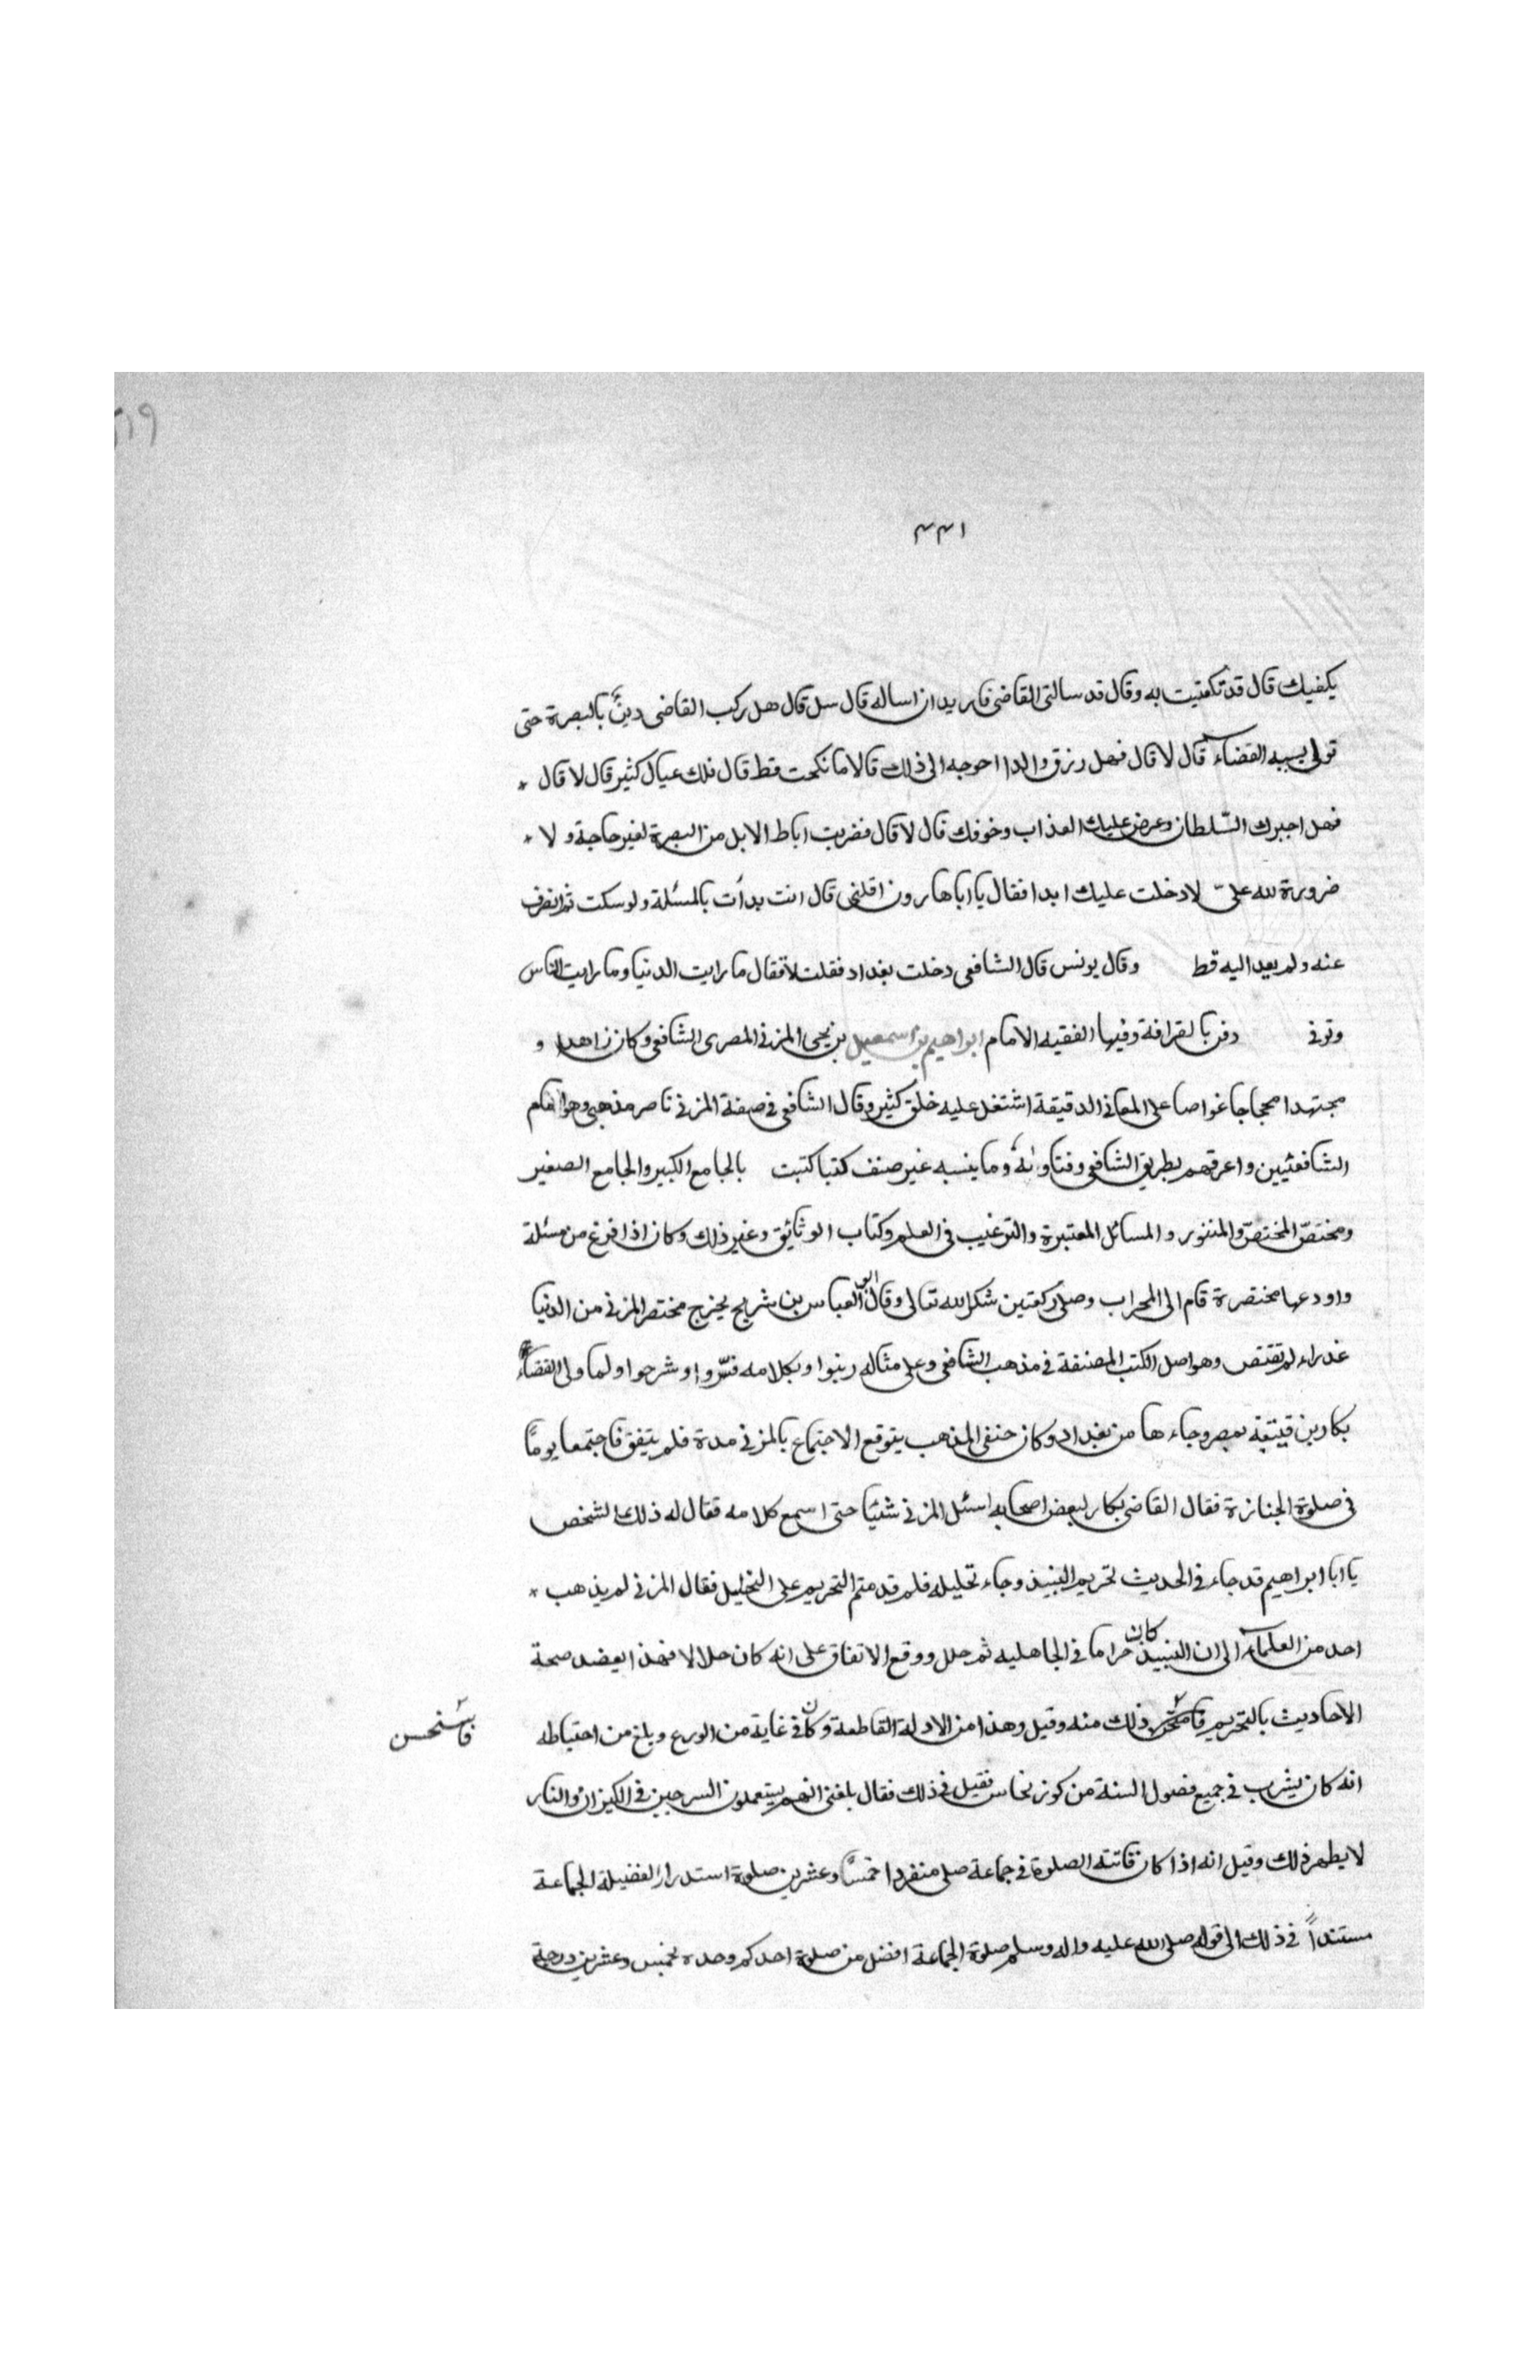 ٤٤١
يكفيك قال قد تكفيت به وقال قد سالتنى القاضى فاريد ان اساله قال سل قال هل ركب القاضى دينٌ بالبصرة حتى
تولى بسببه القضاء قال لا قال فهل رزق والدا احوجه الى ذلك قال لا ما نكحت قط قال فلك عيال كثير قال لا قال
فهل اجبرك السّلطان وعرض عليك العذاب وخوفك قال لا قال فضربت اباط الابل من البصرة لغير حاجة ولا
ضرورة لله علىّ لا دخلت عليك ابدا فقال يا ابا هارون اقلنى قال انت بدأت بالمسئلة ولو سكت ثم انصرف
عنه ولم يعد اليه قط وقال يونس قال الشافعى دخلت بغداد فقلت لا فقال ما رايت الدنيا وما رايت الناس
وتوفى دفن بالقرافة وفيها الفقيه الامام ابراهيم بن اسمعيل بن يحيى المزنى المصرى الشافعى وكان زاهدا و
مجتهدا محجاجا غواصا على المعانى الدقيقة اشتغل عليه خلق كثير وقال الشافعى فى صفة المزنى ناصر مذهبى وهو امام
الشافعيين واعرفهم بطريق الشافعى وفتاواه وما ينسبه غير صنف كتبا كتبت بالجامع الكبير والجامع الصغير
ومختصّ المختصّ والمنثور والمسائل المعتبرة والترغيب فى العلم وكتاب الوثائيق وغير ذلك وكان اذا فرغ من مسئلة
واودعها مختصرة قام الى المحراب وصلى ركعتين شكر لله تعالى وقال ابو العباس بن شريح يخرج مختصر المزنى من الدنيا
عذراء لم تقتض وهو اصل الكتب المصنفة فى مذهب الشافعى وعلى مثاله رتبوا وبكلامه فسّروا وشرحوا ولما ولى القضاء
بكار بن قيتبة بمصر وجاء ها من بغداد وكان حنفى المذهب يتوقع الاجتماع بالمزنى مدة فلم يتفق فاجتمعا يوماً
فى صلوة الجنازة فقال القاضى بكار لبعض اصحابه اسئل المزنى شئيا حتى اسمع كلامه فقال له ذلك الشخص
يا ابا ابراهيم قد جاء فى الحديث تحريم النبيذ وجاء تحليله فلم قدمتم التحريم على التحليل فقال المزنى لم يذهب
احد من العلماء الى ان النبيذ كان حراما فى الجاهليه ثم حلل ووقع الاتفاق على انه كان حلالا فهذا يعضد صحة
الاحاديث بالتحريم فاستحسن ذلك منه وقيل وهذا من الادلة القاطعة وكان فى غاية من الورع وبلغ من احتياطه
انه كان يشرب فى جميع فصول السنة من كوز نحاس فقيل فى ذلك فقال بلغنى انهم يستعملون السرجين فى الكيزان والنار
لا يطهر ذلك وقيل انه اذا كان فاتته الصلوة فى جماعة صلى منفردا خمساً وعشرين صلوة استدرار الفضيلة الجماعة
مستنداً فى ذلك الى قوله صلى الله عليه واله وسلم صلوة الجماعة افضل من صلوة احدكم وحده بخمس وعشرين درجة